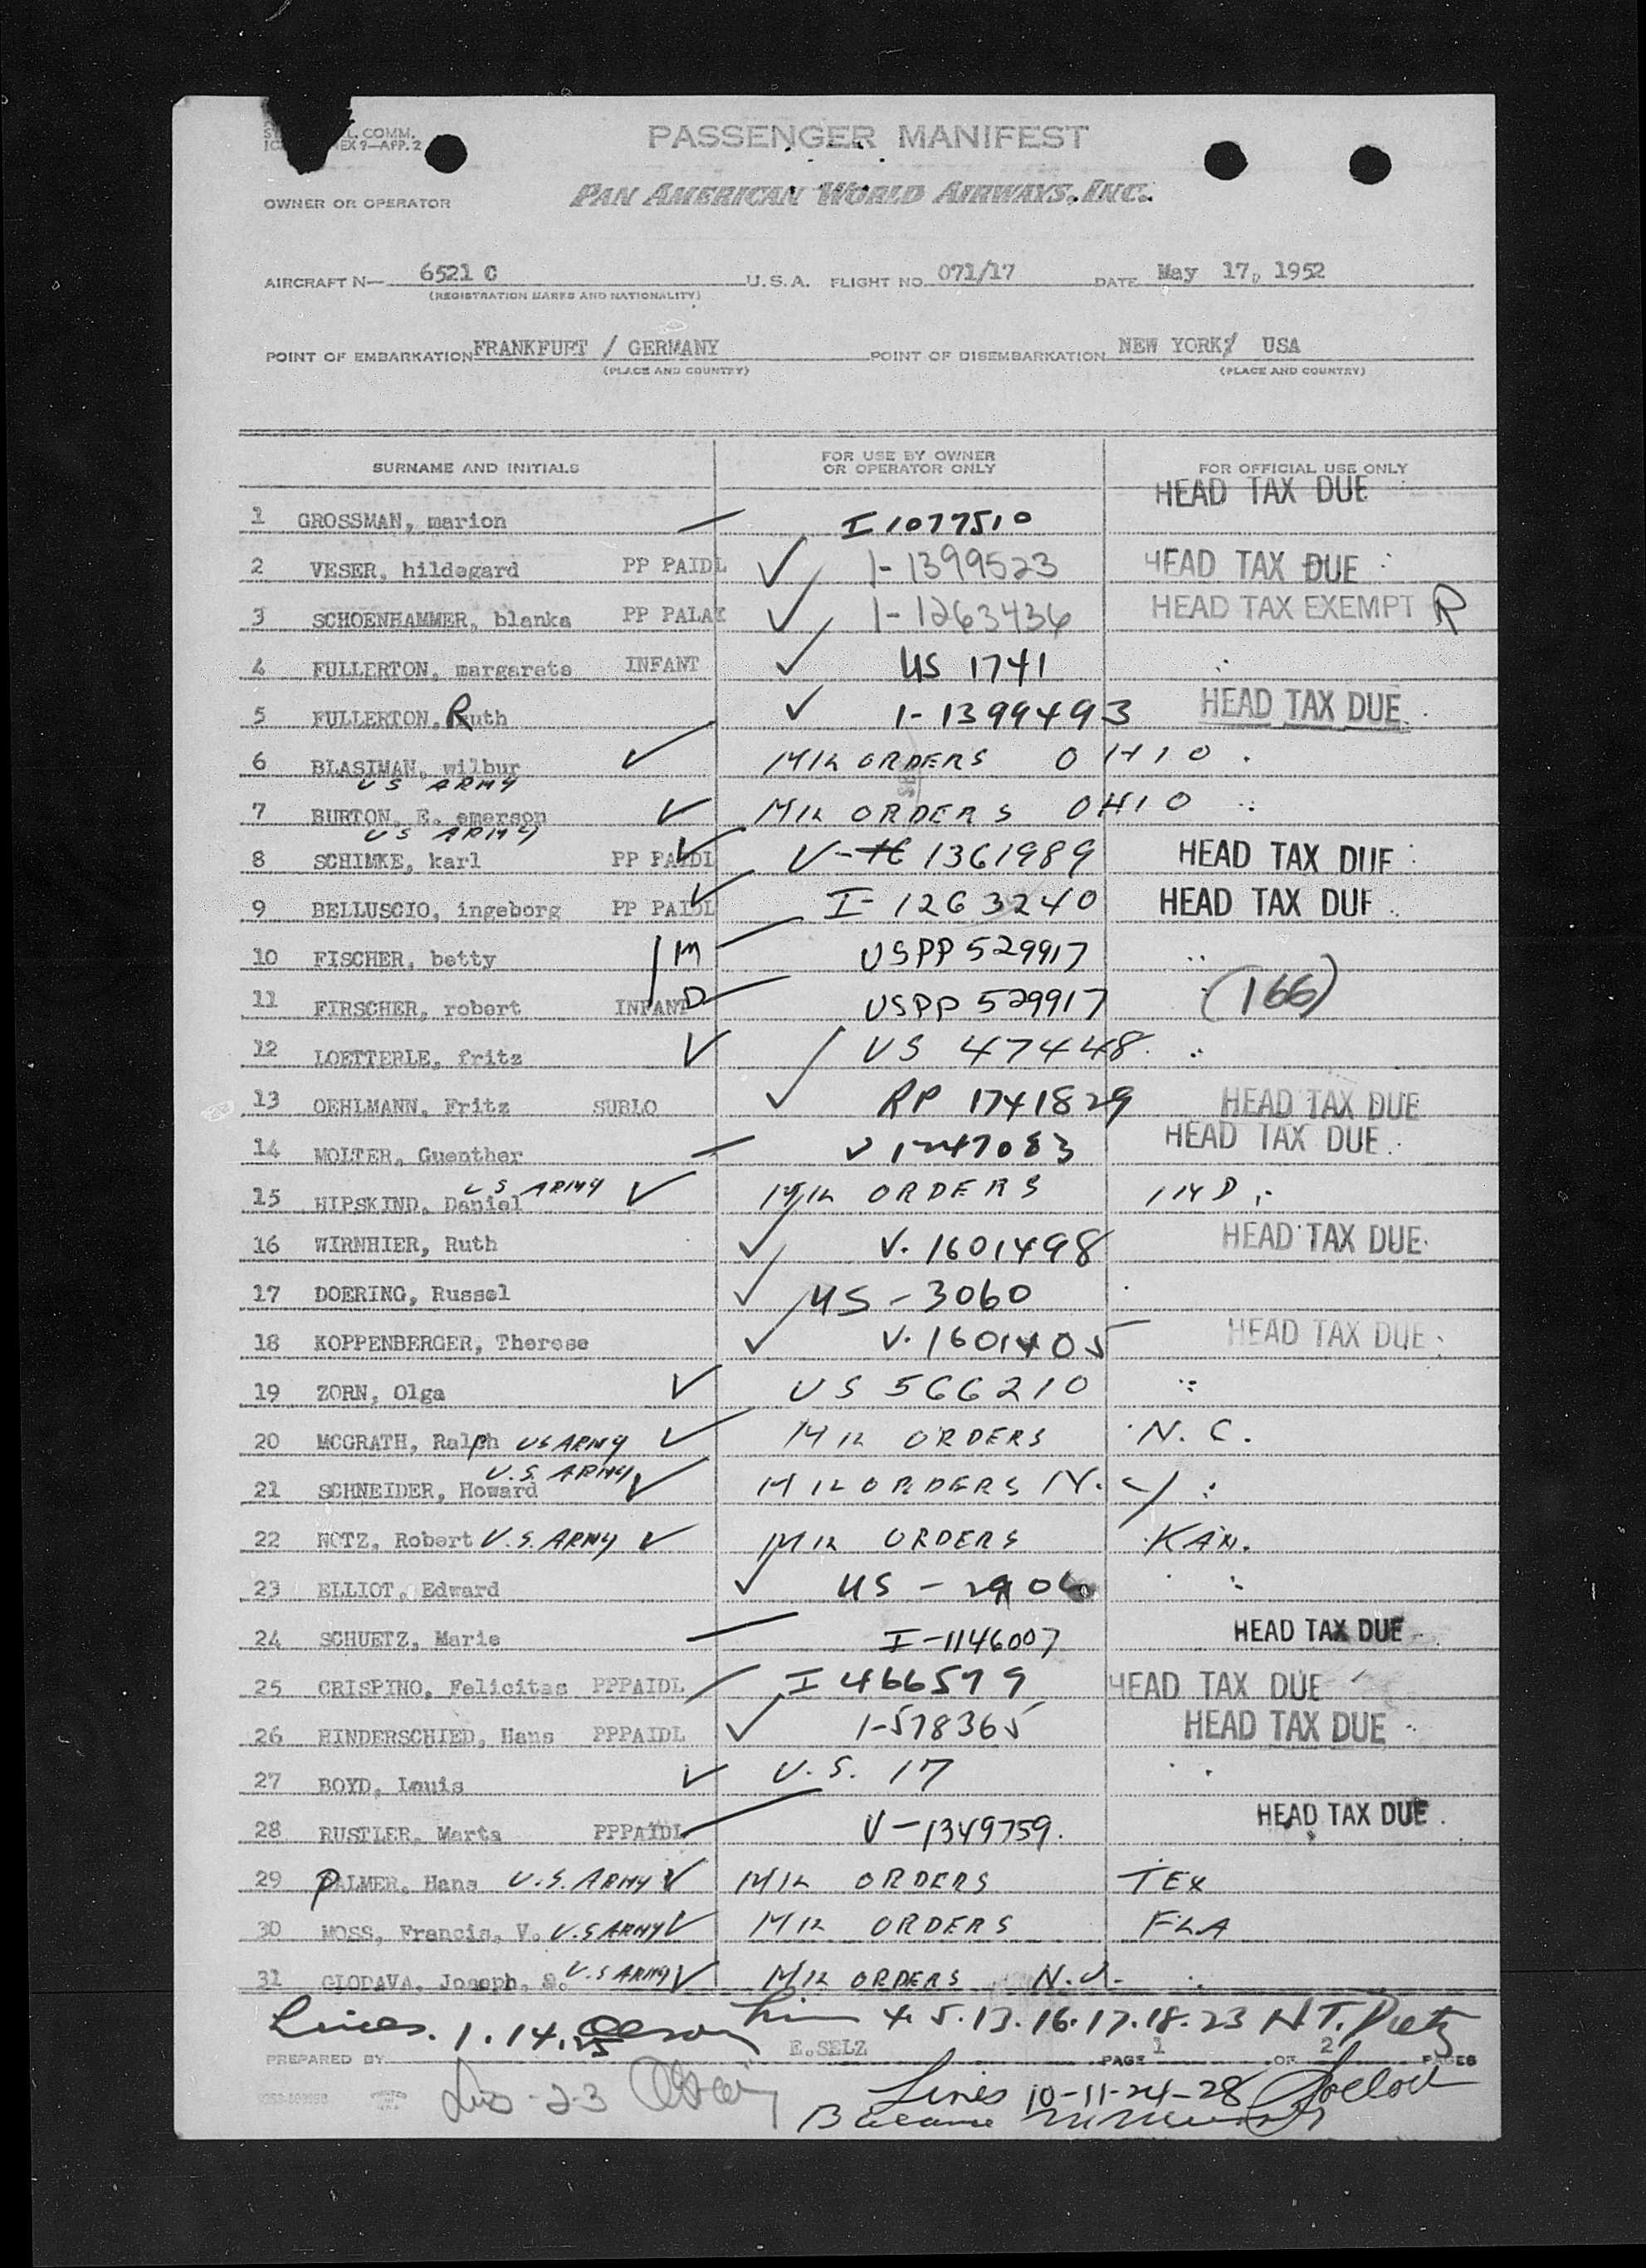 L. COMM.
EX 9—APP. 2
PASSENGER MANIFEST
OWNER OR OPERATOR PAN AMERICAN WORLD AIRWAYS, INC.
AIRCRAFT N— 6521 C U.S.A. FLIGHT NO. 071/17 DATE May 17, 1952
(REGISTRATION MARKS AND NATIONALITY)
POINT OF EMBARKATION FRANKFURT / GERMANY POINT OF DISEMBARKATION NEW YORK/ USA
(PLACE AND COUNTRY) (PLACE AND COUNTRY)
SURNAME AND INITIALS FOR USE BY OWNER OR OPERATOR ONLY FOR OFFICIAL USE ONLY
HEAD TAX DUE
1 GROSSMAN, marion I 1077510
2 VESER, hildegard PP PAIDL ✓ 1-1399523 HEAD TAX DUE
3 SCHOENHAMMER, blanka PP PALAK ✓ 1-1263436 HEAD TAX EXEMPT R
4 FULLERTON, margarete INFANT ✓ US 1741
5 FULLERTON, Ruth ✓ 1-1399493 HEAD TAX DUE
6 BLASIMAN, wilbur ✓ MIL ORDERS OHIO
US ARMY
7 BURTON, E. emerson ✓ MIL ORDERS OHIO
US ARMY
8 SCHIMKE, karl PP PAIDL ✓ V- 1361989 HEAD TAX DUE
9 BELLUSCIO, ingeborg PP PAIDL ✓ I-1263240 HEAD TAX DUE
10 FISCHER, betty M USPP 529917
11 FIRSCHER, robert INFANT D USPP 529917 (166)
12 LOETTERLE, fritz ✓ US 47448
13 OEHLMANN, Fritz SUBLO ✓ RP 1741829 HEAD TAX DUE
14 MOLTER, Guenther V 1247083 HEAD TAX DUE
15 HIPSKIND, Daniel US ARMY ✓ MIL ORDERS IND
16 WIRNHIER, Ruth ✓ V. 1601498 HEAD TAX DUE
17 DOERING, Russel ✓ US-3060
18 KOPPENBERGER, Therese ✓ V. 1601405 HEAD TAX DUE
19 ZORN, Olga ✓ US 566210
20 MCGRATH, Ralph US ARMY ✓ MIL ORDERS N.C.
21 SCHNEIDER, Howard U.S. ARMY ✓ MIL ORDERS N.Y
22 NOTZ, Robert U.S. ARMY ✓ MIL ORDERS KAN.
23 ELLIOT, Edward ✓ US-
24 SCHUETZ, Marie I-1146007 HEAD TAX DUE
25 CRISPINO, Felicitas PPPAIDL I 466579 HEAD TAX DUE
26 RINDERSCHIED, Hans PPPAIDL ✓ 1-578365 HEAD TAX DUE
27 BOYD, Louis ✓ U.S. 17
28 RUSTLER, Marta PPPAIDL V-1349759. HEAD TAX DUE
29 PALMER, Hans U.S. ARMY ✓ MIL ORDERS TEX
30 MOSS, Francis, V. U.S ARMY ✓ MIL ORDERS FLA
31 CIODAVA, Joseph, U.S ARMY ✓ MIL ORDERS N.J.
Lines. 1.14.25 Olson 4.5.13.16.17.18.23 Dietz
PREPARED BY E. SELZ PAGE 1 OF 2 PAGES
2-3 Lines 10-11-24-28
Balance